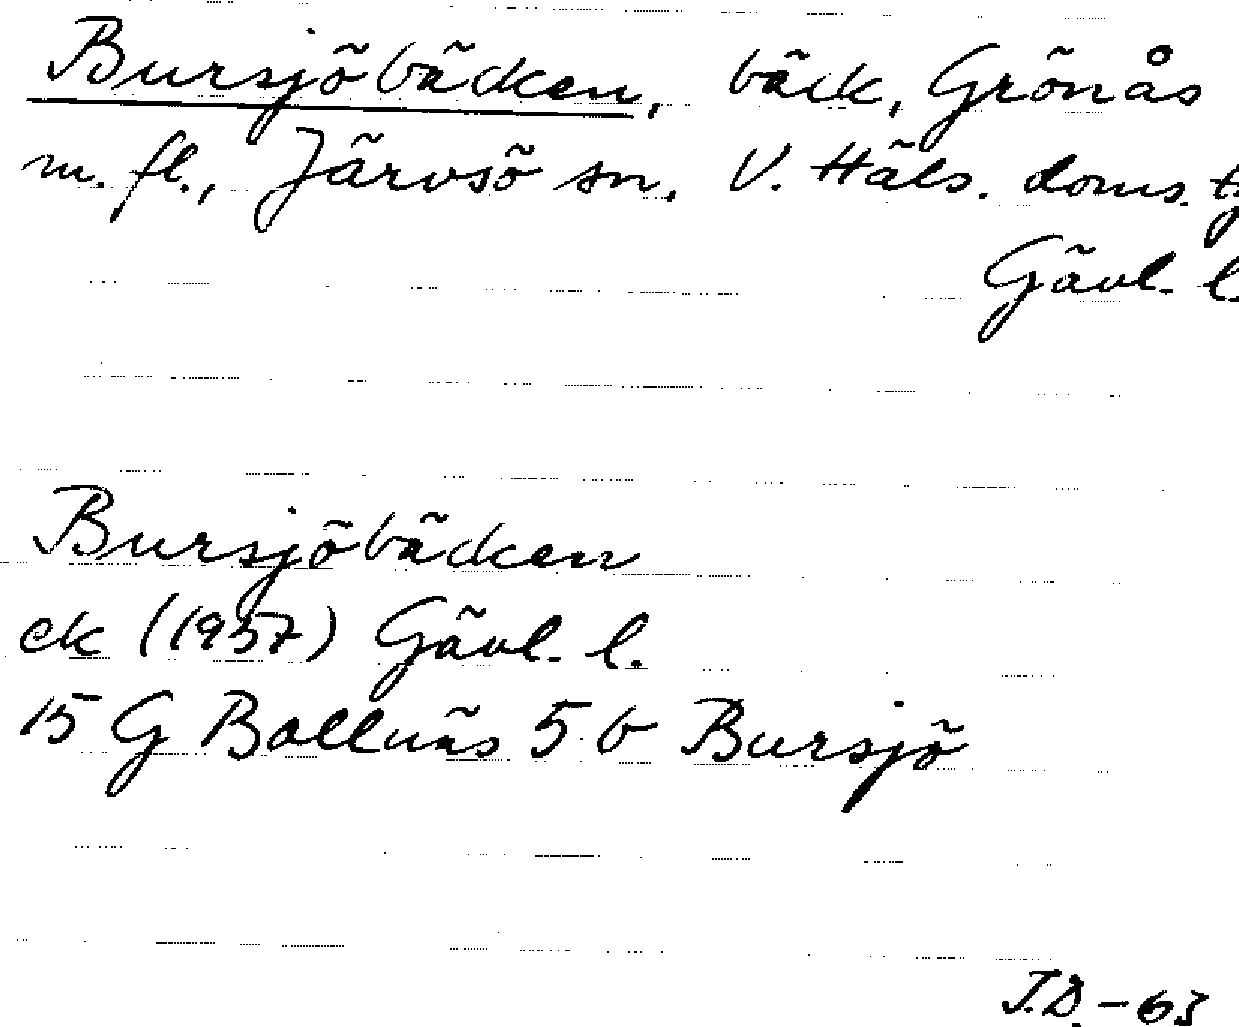 Bursjöbäcken, bäck, Grönås
m. fl., Järvsö sn, V. Häls. doms. tg
Gävl. l.
Bursjöbäcken
ek (1957) Gävl. l.
15 G Bollnäs 5 b Bursjö
J.D. - 63